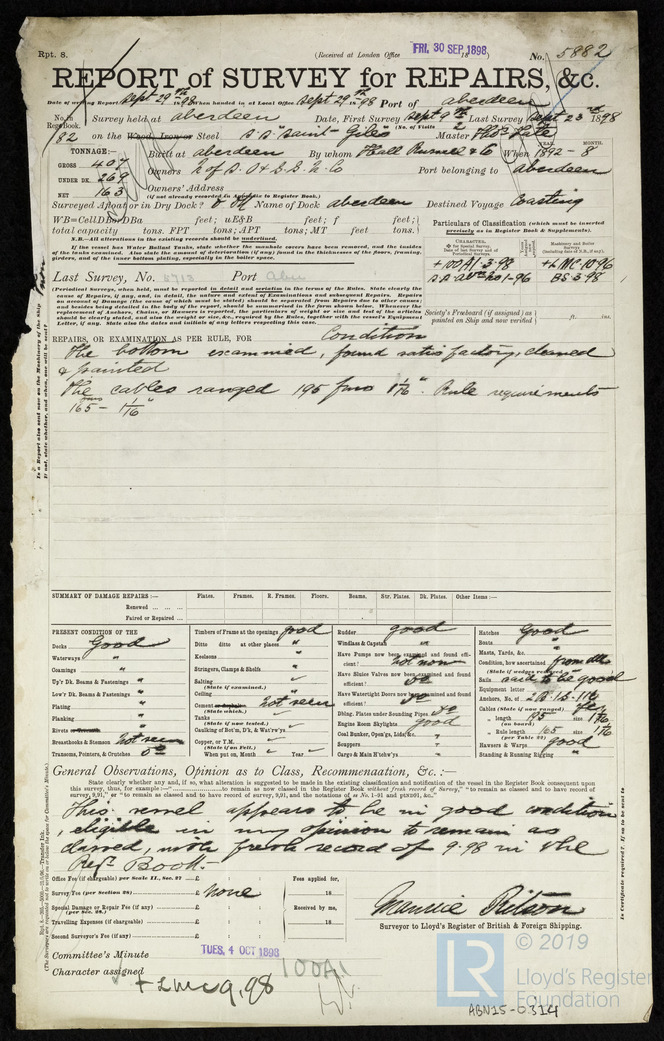 Rpt. 8.
(Received at London Office FRI, 30 SEP, 1898 18 )
No. 5882
REPORT of SURVEY for REPAIRS, &c.
Date of writing Report Sept 29th 1898 When handed in at Local Office Sept 29th 1898 Port of aberdeen
No. in Reg. Book. 182 Survey held at aberdeen Date, First Survey Sept 9th Last Survey Sept 23rd 1898
(No. of Visits 2
on the Wood, Iron or Steel S.S "Saint-Giles" Master
TONNAGE:—
GROSS 407
UNDER DK. 269
NET 163
Built at aberdeen By whom Hall Russell & Co When 1892 - 8
YEAR. MONTH.
Owners N of S. O & S. S. N. Co Port belonging to aberdeen
Owners' Address
(if not already recorded in Appendix to Register Book.)
Surveyed Afloat or in Dry Dock? Name of Dock aberdeen Destined Voyage Coasting
WB=CellDBorDBa feet; uE&B feet; f feet;
total capacity tons. FPT tons; APT tons; MT feet tons.
N.B.—All alterations in the existing records should be underlined.
If the vessel has Water Ballast Tanks, state whether the manhole covers have been removed, and the insides of the tanks examined. Also state the amount of deterioration (if any) found in the thicknesses of the floors, framing, girders, and of the inner bottom plating, especially in the boiler space.
Particulars of Classification (which must be inserted precisely as in Register Book & Supplements).
+100A1-3-98
+LMC-10-96
BS-3-98
Last Survey, No. 5713 Port Abn
(Periodical Surveys, when held, must be reported in detail and seriatim in the terms of the Rules. State clearly the cause of Repairs, if any, and, in detail, the nature and extent of Examinations and subsequent Repairs. Repairs on account of Damage (the cause of which must be stated) should be separated from Repairs due to other causes, and besides being detailed in the body of the report, should be summarised in the form shown below. Whenever the replacement of Anchors, Chains, or Hawsers is reported, the particulars of weight or size and test of the articles should be clearly stated, and also the weight or size, &c., required by the Rules, together with the vessel's Equipment Letter, if any. State also the dates and initials of any letters respecting this case.
Society's Freeboard (if assigned) as painted on Ship and now verified ft. ins.
REPAIRS, OR EXAMINATION AS PER RULE, FOR Condition
The bottom examined, found satisfactory, cleaned
& painted
The cables ranged 195 fms 1 1/16". Rule requirements
165 fms - 1 1/16"
SUMMARY OF DAMAGE REPAIRS:— Plates. Frames. R. Frames. Floors. Beams. Str. Plates. Dk. Plates. Other Items:—
Renewed ... ... ...
Faired or Repaired ...
PRESENT CONDITION OF THE
Decks Good
Waterways "
Coamings "
Up'r Dk. Beams & Fastenings "
Low'r Dk. Beams & Fastenings "
Plating "
Planking "
Rivets
Breasthooks & Stemson Not seen
Transoms, Pointers, & Crutches do
Timbers of Frame at the openings good
Ditto ditto at other places "
Keelsons "
Stringers, Clamps & Shelfs "
Salting
(State if examined.)
Ceiling
Cement Not seen
Tanks
(State if now tested.)
Caulking of Bot'm, D'k, & Wat'rw'ys
Copper, or Y.M.
(State if on Felt.)
When put on, Month Year
Rudder good
Windlass & Capstan "
Have Pumps now been examined and found efficient? Not now
Have Sluice Valves now been examined and found efficient? do
Have Watertight Doors now been examined and found efficient? do
Dblng. Plates under Sounding Pipes do
Engine Room Skylights good
Coal Bunker, Open'gs, Lids, &c. "
Scuppers "
Cargo & Main H'tchw'ys "
Hatches Good
Boats "
Masts, Yards, &c. "
Condition, how ascertained from dks
(State if wedges removed)
Sails said to be good
Equipment letter
Anchors, No. of 2B. 1S. 1K
Cables (State if now ranged) Yes
„ length 195 size 1 1/16
(on board)
„ Rule length 165 size 1 1/16
(per Table 22)
Hawsers & Warps good
Standing & Running Rigging "
General Observations, Opinion as to Class, Recommendation, &c.:—
State clearly whether any and, if so, what alteration is suggested to be made in the existing classification and notification of the vessel in the Register Book consequent upon
this survey, thus, for example:—"to remain as now classed in the Register Book without fresh record of Survey," "to remain as classed and to have record of
survey, 9,91," or "to remain as classed and to have record of survey, 9,91, and the notations of ss No. 1-91 and ptND91, &c."
This vessel appears to be in good condition
, eligible in my opinion to remain as
classed, with fresh record of 9.98 in the
Regr Book.-
Office Fee (if chargeable) per Scale II., Sec. 27 ... £
Survey Fee (per Section 28) ... £ none
Special Damage or Repair Fee (if any) ... £
(per Sec. 28.)
Travelling Expenses (if chargeable) ... £
Second Surveyor's Fee (if any) ... £
Fees applied for,
18
Received by me,
18
Maurice Ritson
Surveyor to Lloyd's Register of British & Foreign Shipping.
Committee's Minute TUES, 4 OCT 1898
Character assigned 100A1
+LMC 9,98
LR
© 2019
Lloyd's Register
Foundation
ABN15-0314